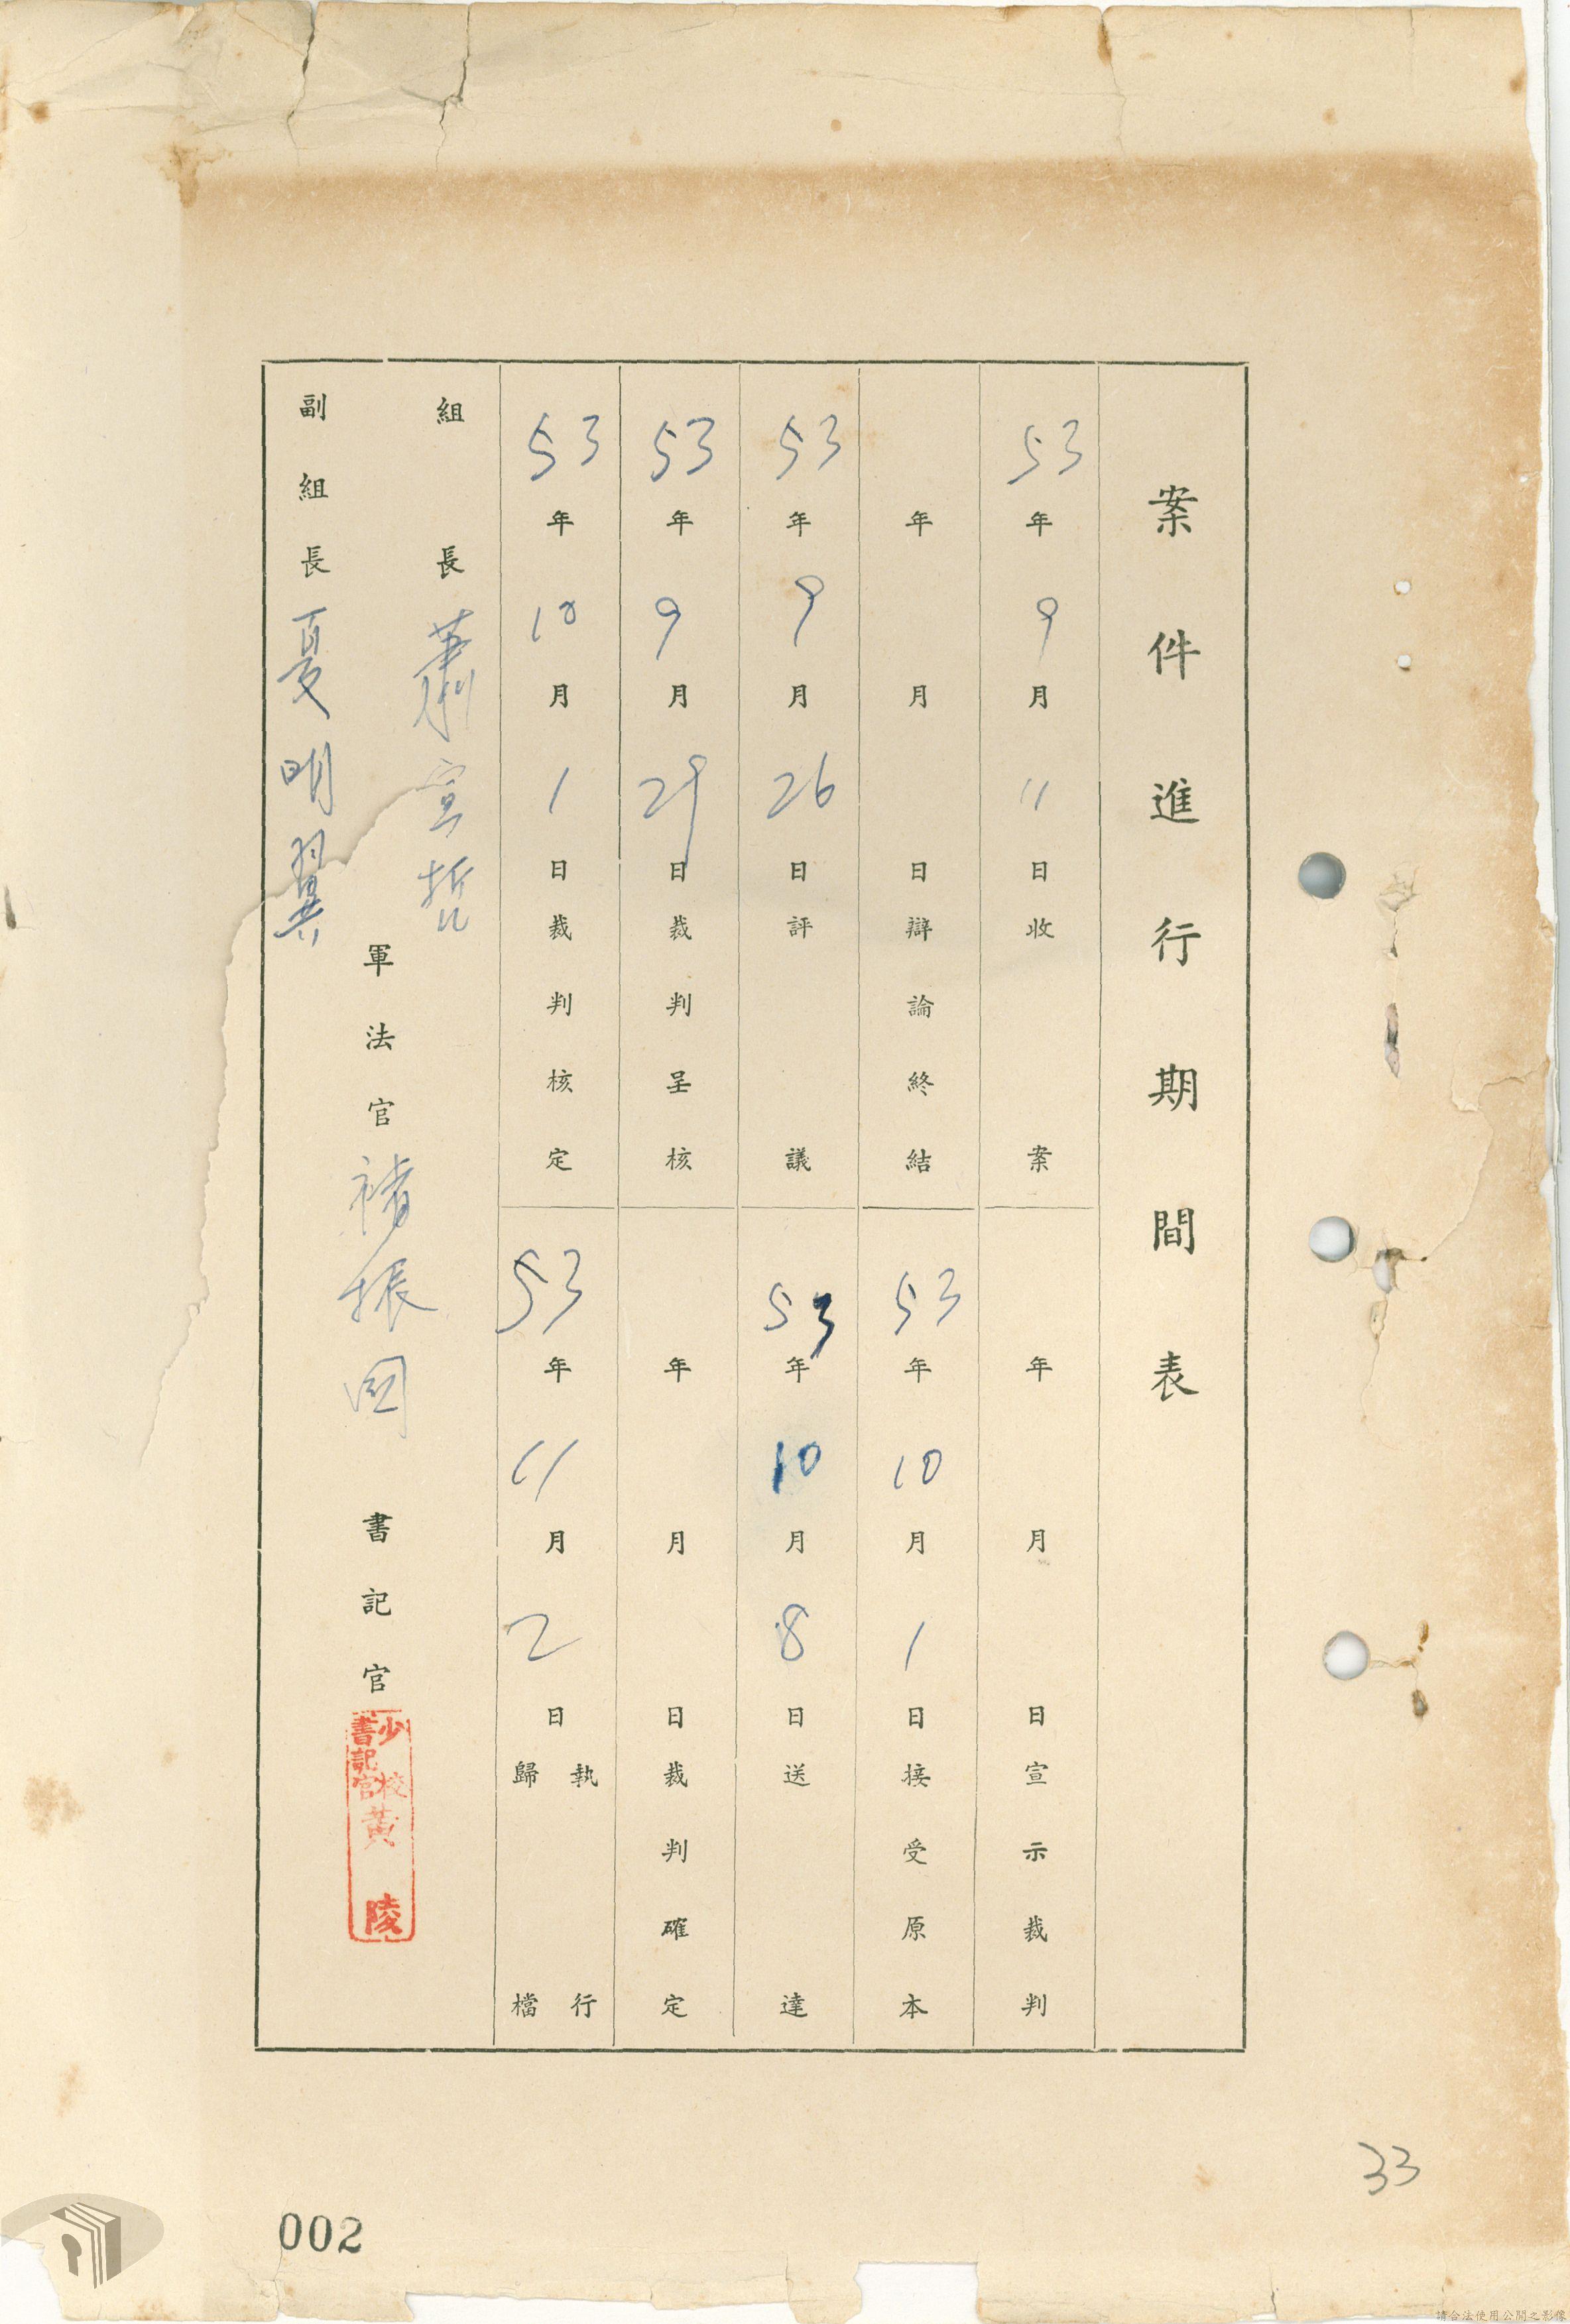 案件進行期間表
53年9月11日收案
年月日宣示裁判
年月日辯論終結
53年10月1日接受原本
53年9月26日評議
53年10月8日送達
53年9月29日裁判呈核
年月日裁判確定
53年10月1日裁判核定
53年11月2日執行
歸檔
組長 蕭宣哲
軍法官 褚振國
書記官 少校書記官黃陵
副組長 夏明翼
33
002
請合法使用公開之影像